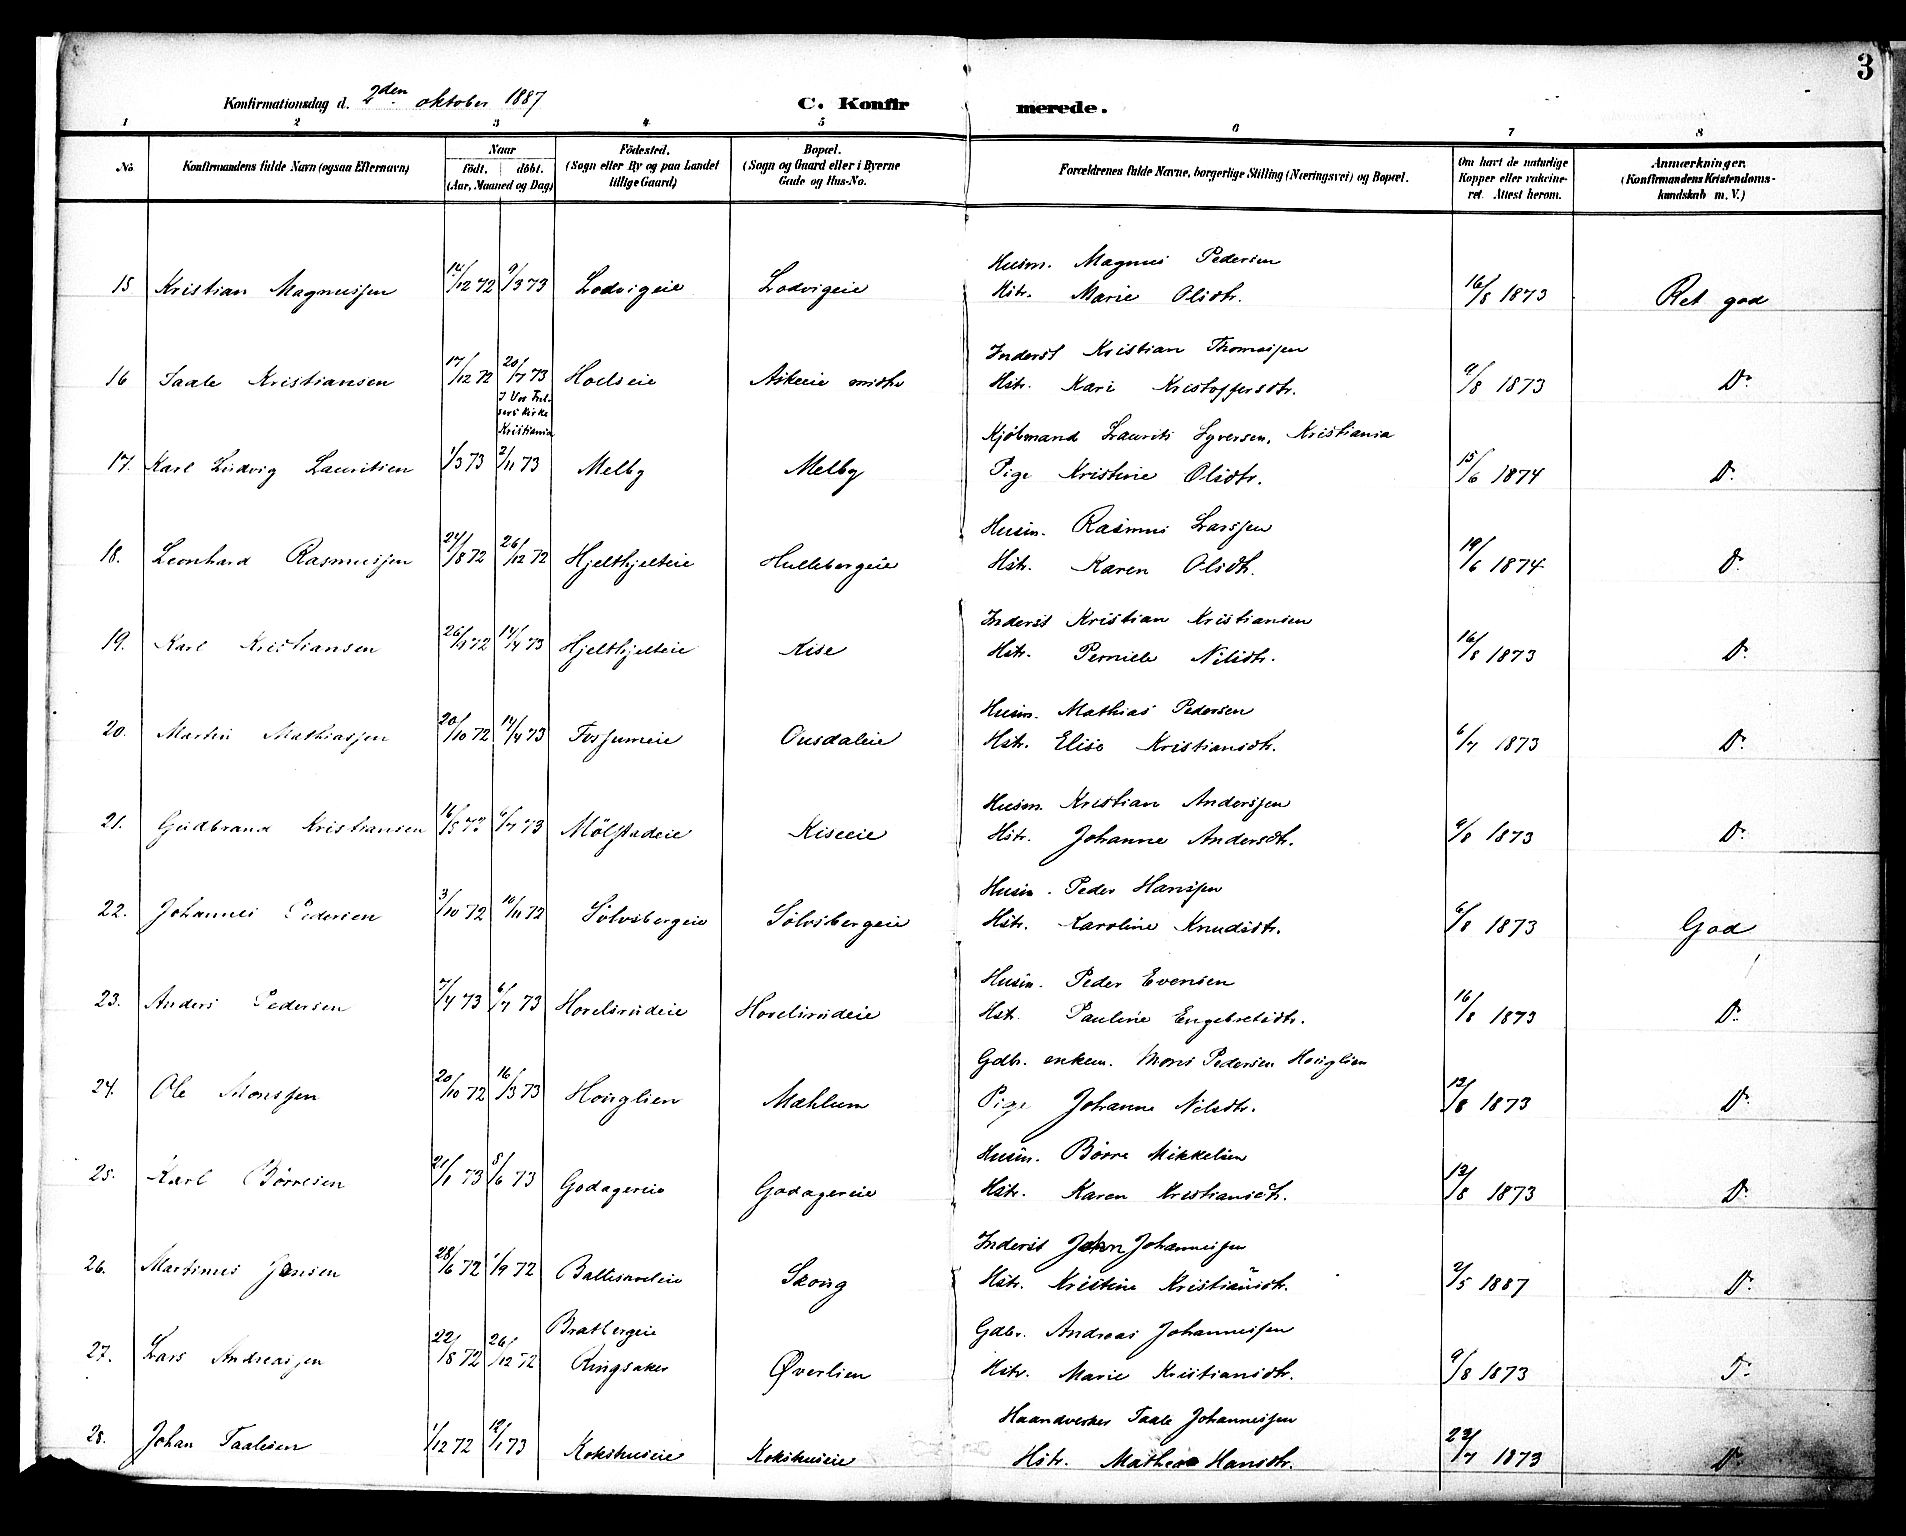 3
Konfirmationsdag d. 2den oktober 1887 C. Konfirmerede.
1 2 3 4 5 6 7 8
No Konfirmandens fulde Navn (ogsaa Efternavn) Naar født. døbt. (Aar, Maaned og Dag) Fødested. (Sogn eller By og paa Landet tillige Gaard) Bopæl. (Sogn og Gaard eller i Byerne Gade og Hus-No. Forældrenes fulde Navne, borgerlige Stilling (Næringsvei) og Bopæl. Om havt de naturlige Kopper eller vakcineret. Attest herom. Anmærkninger. (Konfirmandens Kristendomskundskab m. V.)
Husm. Magnus Pedersen
15 Kristian Magnussen 14/12 72 9/3 73 Lodvigeie Lodvigeie Hstr. Marie Olsdtr. 16/8 1873 Ret god
Inderst Kristian Thomassen
16 Taale Kristiansen 17/12 72 20/7 73 Hoelseie Askeie Hstr. Kari Kristoffersdtr. 9/8 1873 Do
I Vor Frelsers Kirke Kristiania
Kjøbmand Laurits Syversen, Kristiania
17. Karl Ludvig Lauritsen 1/3 73 2/11 73 Melby Melby Pige Kristine Olsdtr. 15/6 1874 Do
Husm. Rasmus Larssen
18. Leonhard Rasmussen 24/8 72 26/12 72 Hjelthjelteie Hullebergeie Hstr. Karen Olsdtr. 19/6 1874 Do
Inderst Kristian Kristiansen
19. Karl Kristiansen 72 14/4 73 Hjelthjelteie Kise Hstr. Pernille Nilsdtr. 16/8 1873 Do
Husm. Mathias Pedersen
20. Martin Mathiassen 20/10 72 14/4 73 Fossumeie Ousdaleie Hstr. Elise Kristiansdtr. 6/7 1873 Do
Husm. Kristian Anderssen
21. Gudbrand Kristiansen 16/5 73 6/7 73 Mölstadeie Kiseeie Hstr. Johanne Andersdtr. 9/8 1873 Do
Husm. Peder Hanssen
22. Johannes Pedersen 3/10 72 10/11 72 Sølvsbergeie Sølvsbergeie Hstr. Karoline Knudsdtr. 6/8 1873 God
Husm. Peder Evensen
23. Anders Pedersen 7/4 73 6/7 73 Hovelsrudeie Hovelsrudeie Hstr. Pauline Engebretsdtr. 16/8 1873 Do
Gdbr. enkem. Mons Pedersen Houglien
24. Ole Monssen 20/10 72 16/3 73 Houglien Mæhlum Pige Johanne Nilsdtr. 13/8 1873 Do
Husm. Børre Mikkelsen
25. Karl Børresen 21/1 73 8/6 73 Godagereie Godagereie Hstr. Karen Kristiansdtr. 13/8 1873 Do
Inderst Johannessen
26. Martinus Jensen 28/6 72 1/9 72 Skoug Hstr. Kristine Kristiansdtr. 2/5 1887 Do
Bratbergeie Gdbr. Andreas Johannessen
27. Lars Andreassen 22/8 72 26/12 72 Ringsaker Øverlien Hstr. Marie Kristiansdtr. 9/8 1873
Haandverker Taale Johannessen
28. Johan Taalesen 1/12 72 12/1 73 Kokshuseie Kokshuseie Hstr. Mathea Hansdtr. 23/7 1873 Do